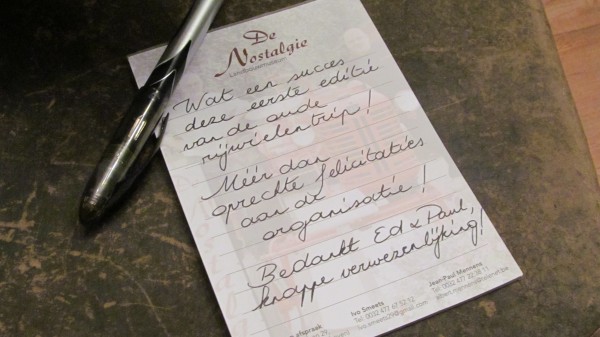 De
Nostalgie
Landbouwmuseum
Wat een succes
deze eerste editie
van de oude
rijwielentrip!
Méér dan
oprechte felicitaties
aan de
organisatie!
Bedankt Ed & Paul,
knappe verwezenlijking!
afspraak
Ivo Smeets
Jean-Paul Mennens